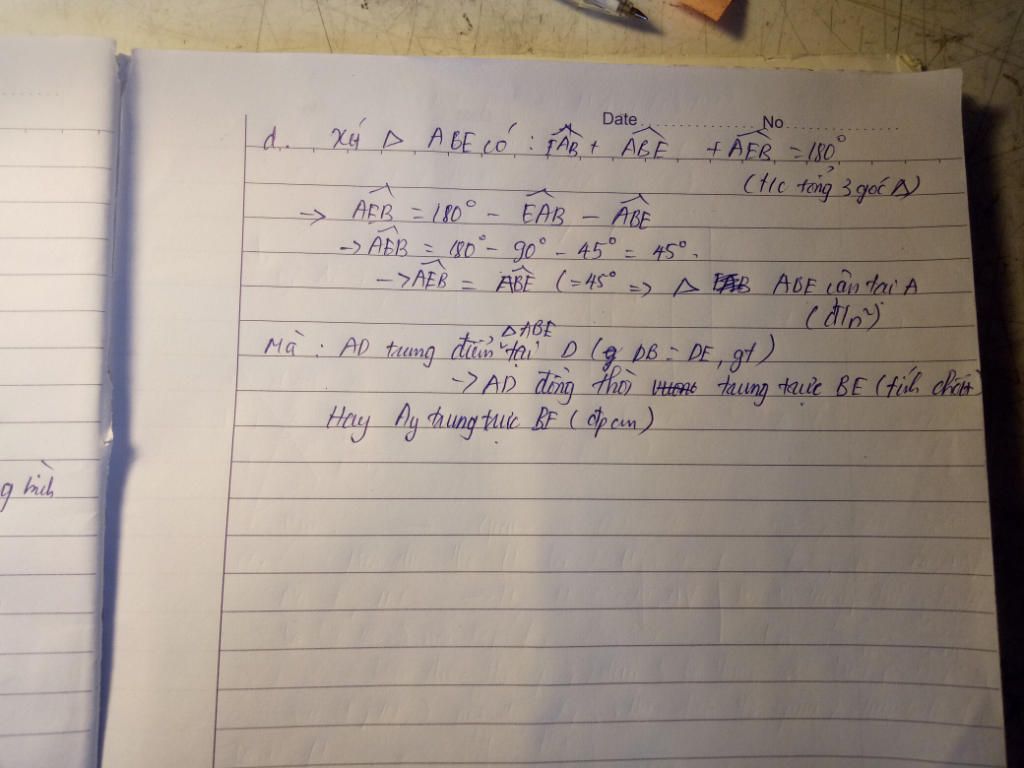 Date.....................No............................
d. Xét Δ ABE có : EAB + ABE + AEB = 180°
(t/c tổng 3 góc Δ)
→ AEB = 180° - EAB - ABE
→ AEB = 180° - 90° - 45° = 45°.
→ AEB = ABE (=45° => Δ ABE cân tại A
(đ/n²)
Δ ABE
Mà : AD trung điểm tại D ( DB = DE, gt)
→ AD đồng thời trung trực BE (tính chất)
Hay Ay trung trực BE (đpcm)
g bình